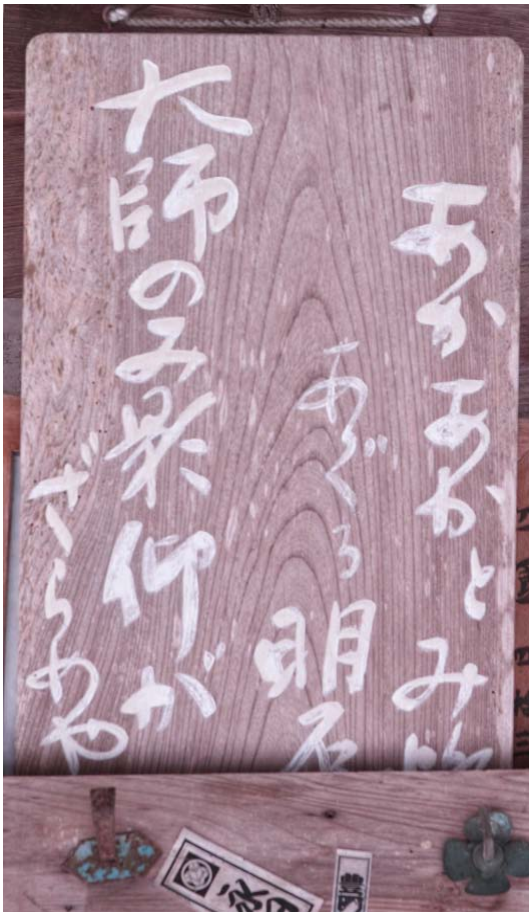 あかあかとみ
あぐる明石
大師のみ影仰が
ざらめや